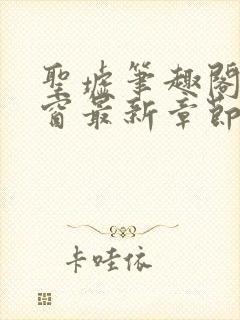 聖墟筆趣閣
窗最新章節
卡哇依